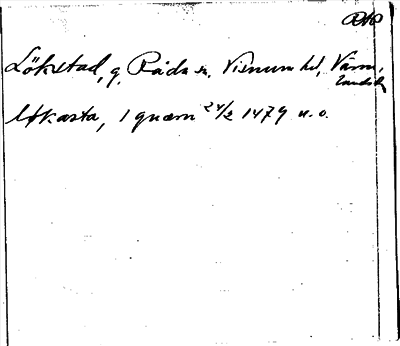 DAO
Lökstad, g. Råda sn, Visnum hd, Värm.
landsb
løkasta, 1 quærn 24/2 1479 u.o.